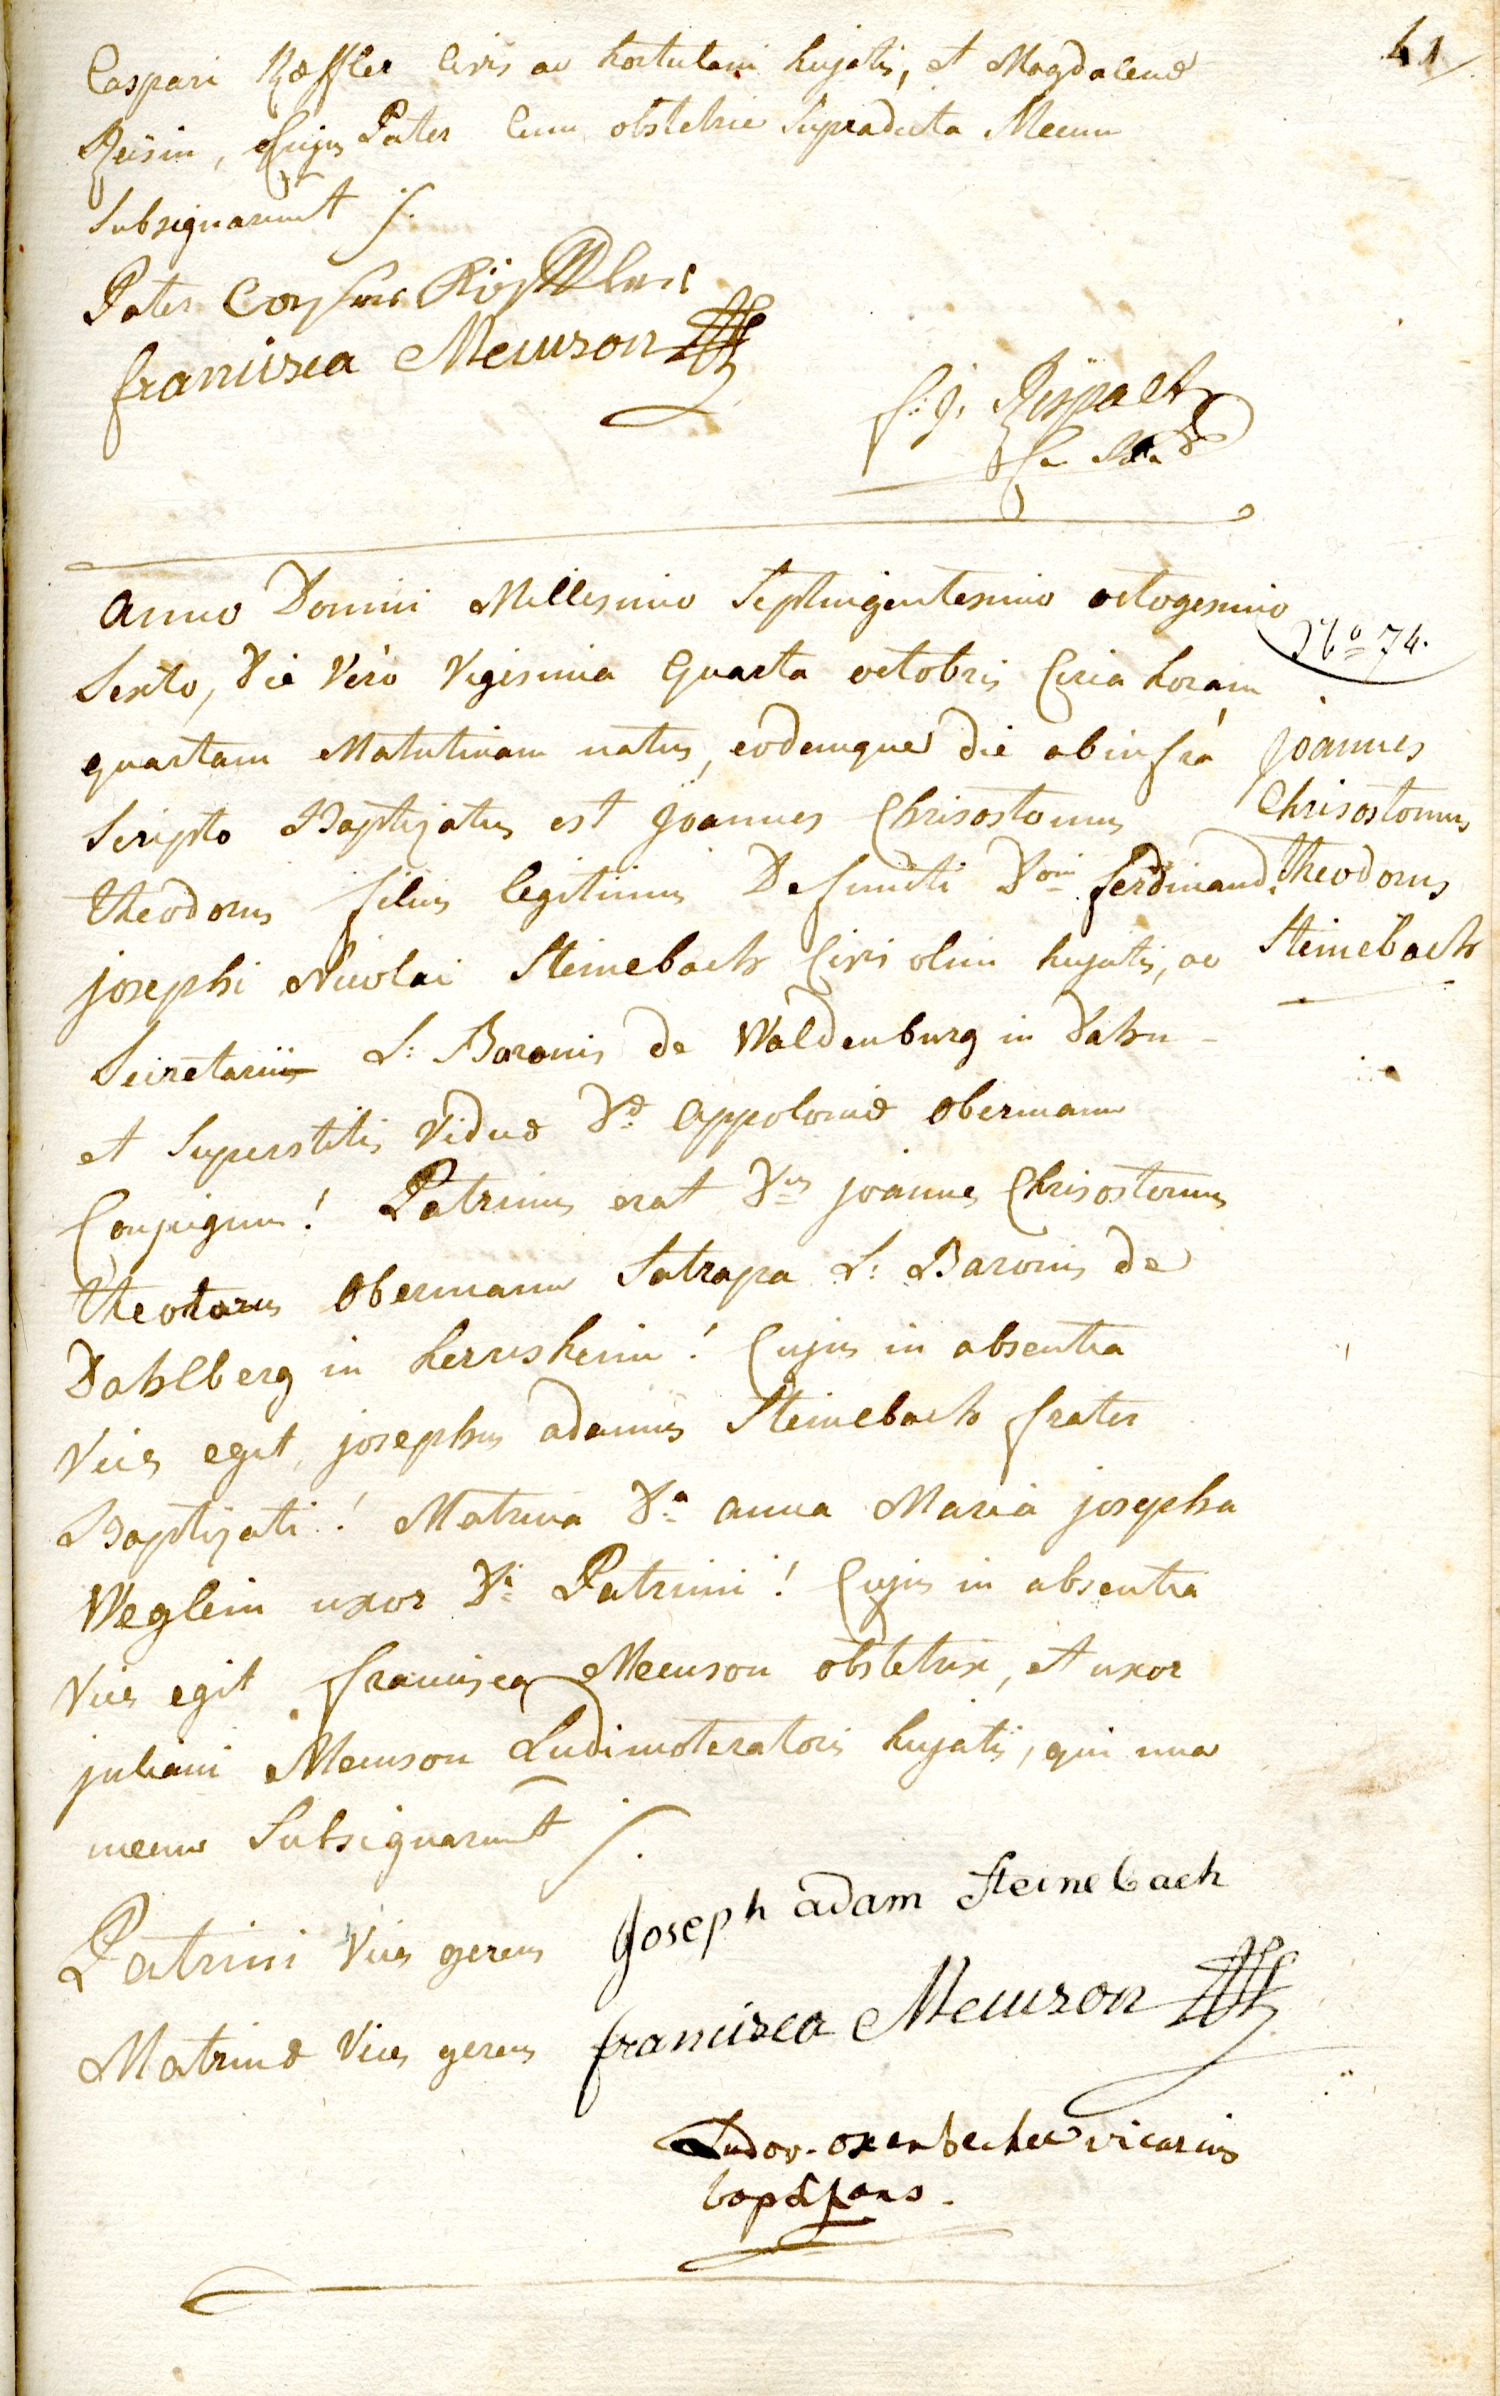 41
Caspari Röffler Civis ac hortulani hujatis, et Magdalenæ
Reisin, Cujus Pater Cum obstetrice Supradicta Mecum
Subsignarunt /.
Pater
francisca Meuson
N.o 74.
Joannes
Chrisostomus
Theodorus
Steinebach
Anno Domini Millesimo Septingentesimo octogesimo
Sexto, Die Vero Vigesima Quarta octobris Circa horam
quartam Matutinam natus, eodemque die ab infrà
Scripto Baptizatus est Joannes Chrisostomus
Theodorus filius legitimus Defuncti Dom̄ ferdinandi
josephi Nicolai Steinebach Civis olim hujatis, ac
Secretarii L: Baronis de Waldenburg in Dahn
et Superstitis Viduæ D.æ Appoloniæ Obermann
Conjugum! Patrinus erat D.us joannes Chrisostomus
Theodorus Obermann Satrapa L: Baronis de
Dahlberg in herrnsheim! Cujus in absentia
Vices egit, josephus adamus Steinebach frater
Baptizati! Matrina D.a anna Maria josepha
Weglein uxor D.i Patrini! Cujus in absentia
Vices egit francisca Meuson obstetrix, et uxor
juliani Meuson Ludimoderatoris hujatis, qui una
mecum Subsignarunt /.
Patrini Vices gerens Joseph adam Steinebach
Matrinæ Vices gerens francisca Meuson
Ludov. oxenbecher vicarius
baptizans.